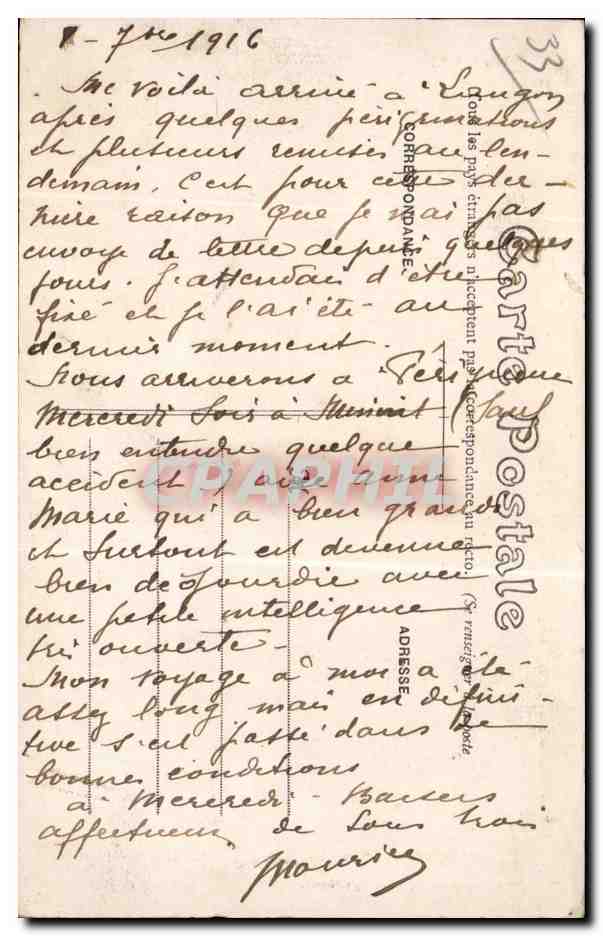 1 - 7bre 1916
33
Me voilà arrivé à Langon
après quelques périgrinations
et plusieurs remises au len-
demain. C'est pour cette der-
nière raison que je n'ai pas
envoyé de lettre depuis quelques
jours. J'attendais d'être
fixé et je l'ai été au
dernier moment.
Nous arriverons à Périgueux
Mercredi soir à Minuit (Sauf
bien entendu quelque
accident) avec Anne
Marie qui a bien grandi
et surtout est devenue
bien dégourdie avec
une petite intelligence
très ouverte -
Mon voyage à moi a été
assez long mais en défini-
tive s'est passé dans de
bonnes conditions
à Mercredi - Baisers
affectueux de tous trois
Maurice
Carte Postale
Tous les pays étrangers n'acceptent pas la correspondance au recto. (Se renseigner à la poste
CORRESPONDANCE
ADRESSE
CPAPHIL